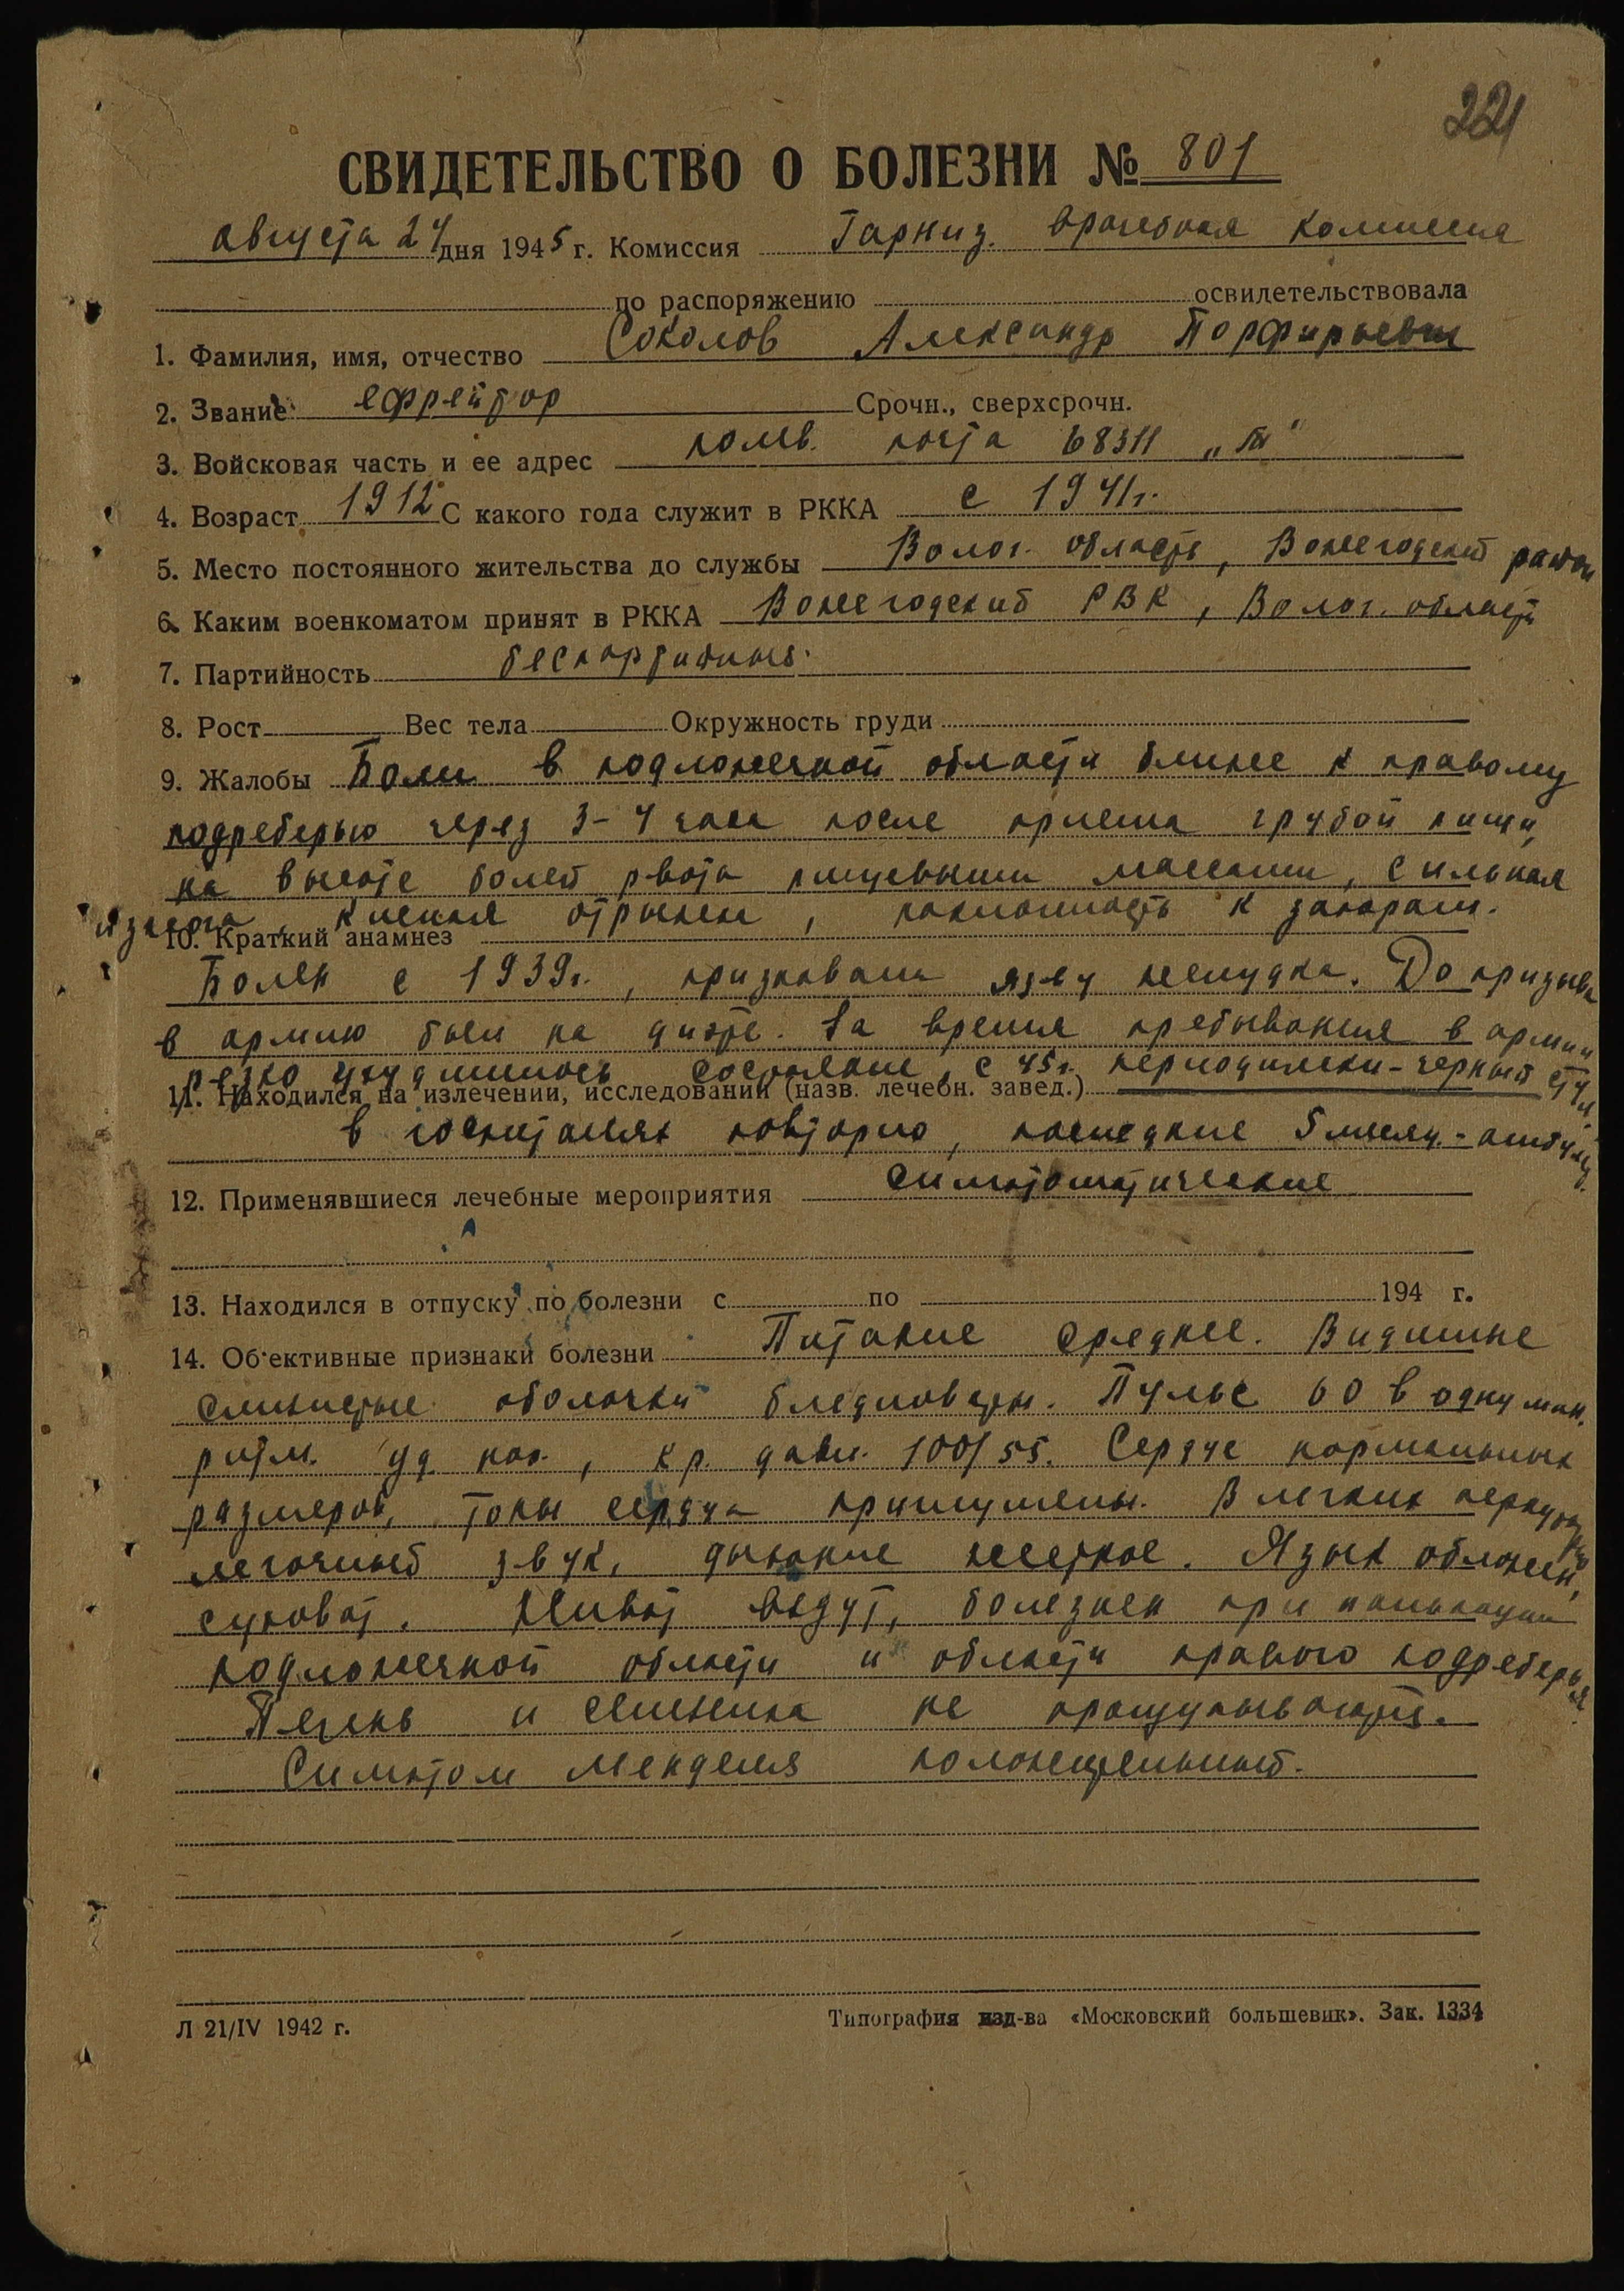 221
СВИДЕТЕЛЬСТВО О БОЛЕЗНИ № 801
августа 24 дня 1945 г. Комиссия Гарниз. врачебная комиссия
по распоряжению освидетельствовала
1. Фамилия, имя, отчество Соколов Александр Порфирьевич
2. Звание ефрейтор Срочн., сверхсрочн.
3. Войсковая часть и ее адрес полев. почта 68311 „Т"
4. Возраст 1912 С какого года служит в РККА с 1941г.
5. Место постоянного жительства до службы Волог. область, Вожегодский район
6. Каким военкоматом принят в РККА Вожегодский РВК, Волог. область
7. Партийность беспартийный.
8. Рост Вес тела Окружность груди
9. Жалобы Боли в подложечной области ближе к правому
подреберью через 3-4 часа после приема грубой пищи,
на высоте болей рвота пищевыми массами, сильная
изжога, кислая отрыжка, наклонность к запорам.
10. Краткий анамнез
Болен с 1939г., признавали язву желудка. До призыва
в армию был на диэте. За время пребывания в армии
резко ухудшилось состояние, с 45г. периодически-черный стул.
11. Находился на излечении, исследовании (назв. лечебн. завед.)
в госпиталях повторно, последние 5 месяц.-амбулат.
12. Применявшиеся лечебные мероприятия симптоматические
13. Находился в отпуску по болезни с по 194 г.
14. Об'ективные признаки болезни Питание среднее. Видимые
слизистые оболочки бледноваты. Пульс 60 в одну мин.
ритм. уд. нап., кр. давл. 100/55. Сердце нормальных
размеров, тоны сердца приглушены. В легких перкуторный
легочный звук, дыхание жесткое. Язык обложен,
суховат. Живот вздут, болезнен при пальпации
подложечной области и области правого подреберья.
Печень и селезенка не прощупываются.
Симптом Менделя положительный.
Л 21/IV 1942 г.
Типография изд-ва «Московский большевик». Зак. 1334